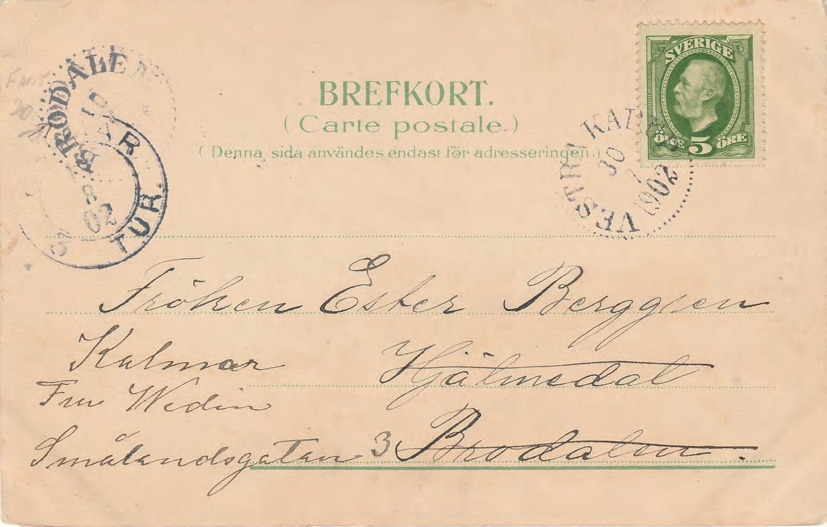 BREFKORT.
(Carte postale.)
(Denna sida användes endast för adresseringen.)
SVERIGE
ÖRE 5 ÖRE
BRODALEN
8
02
TUR.
VESTRA KARUP
30
7
1902
Fröken Ester Berggren
Kalmar Hjälmedal
Fru Wedin
Smålandsgatan 3 Brodalen.